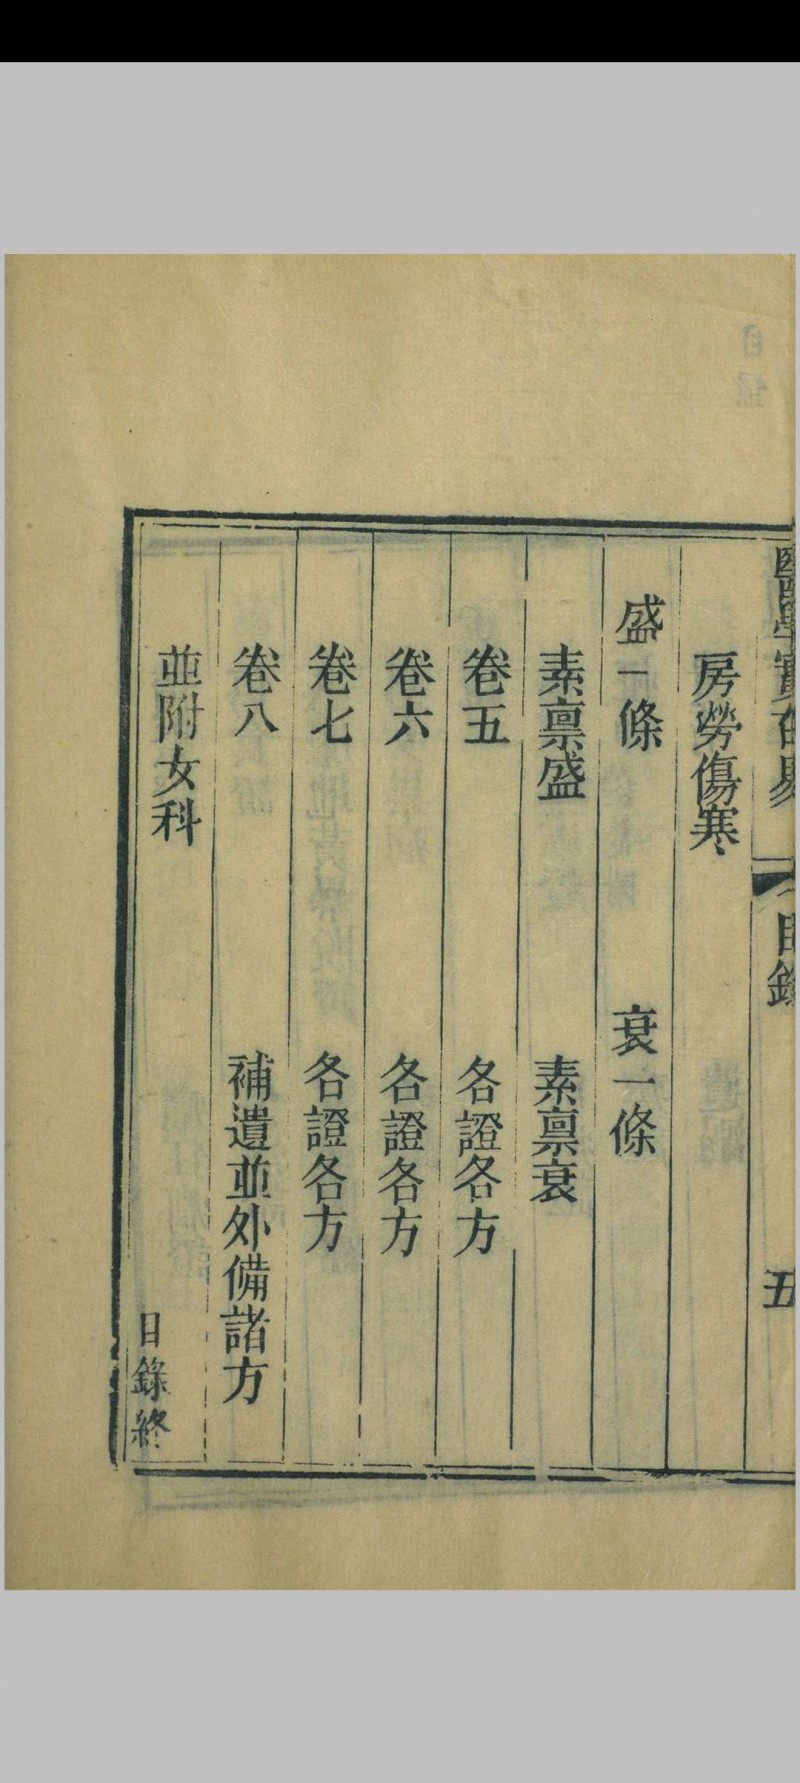 醫學實在易 目錄 五
房勞傷寒
盛一條 衰一條
素稟盛 素稟衰
卷五 各證各方
卷六 各證各方
卷七 各證各方
卷八 補遺並外備諸方
並附女科
目錄終